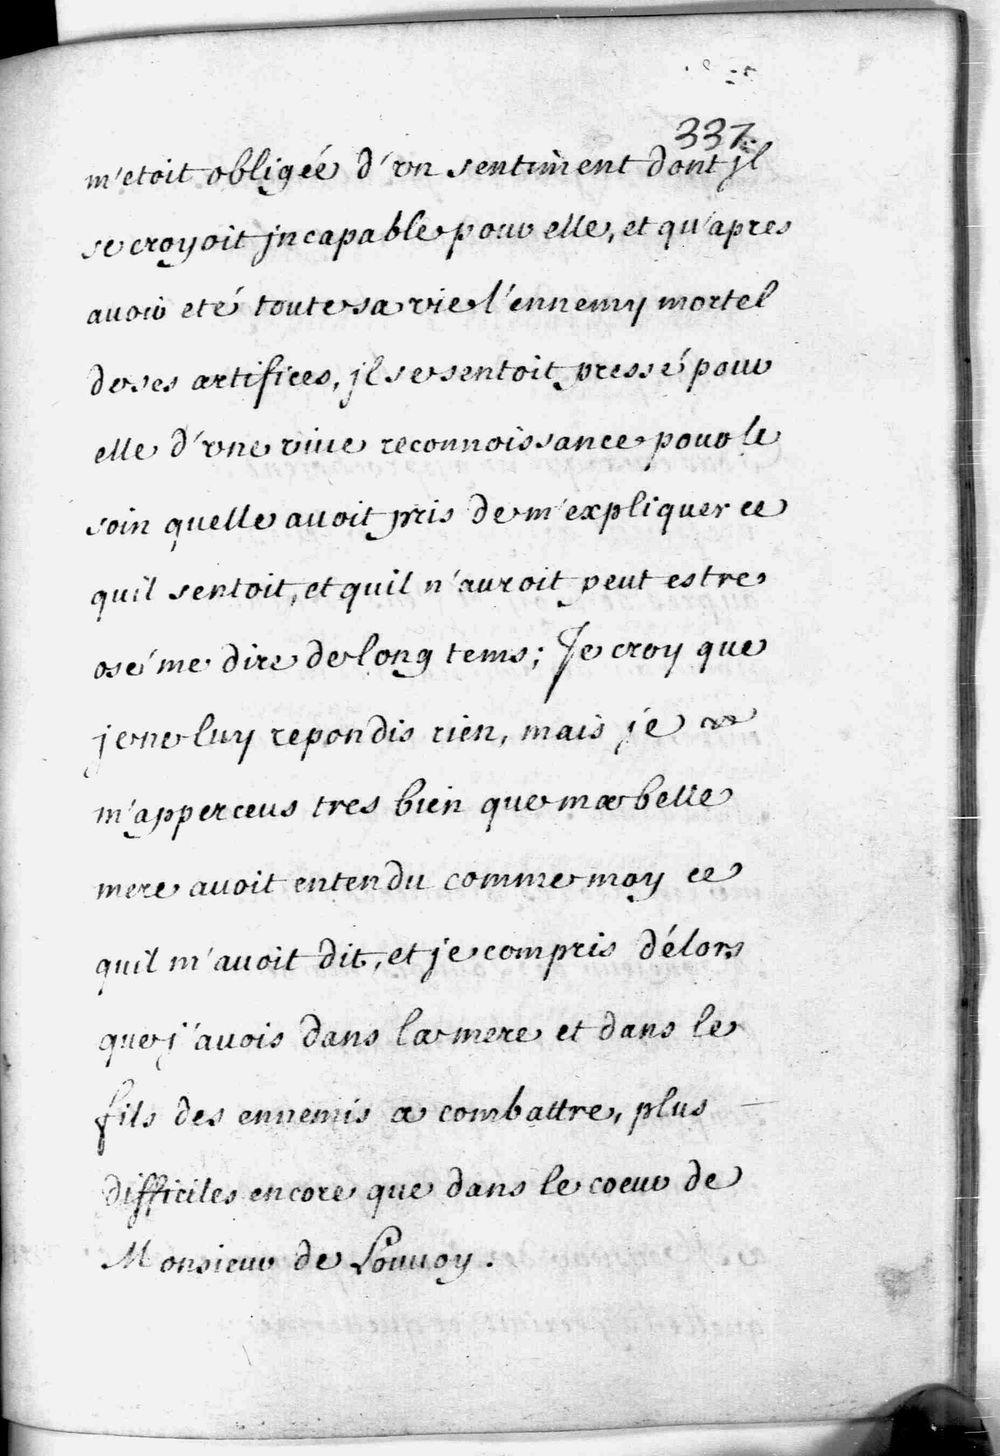 337
m'etoit obligéé d'vn sentiment dont jl
se croyoit jncapable pour elle, et qu'apres
auoir eté toute sa vie l'ennemy mortel
de ses artifices, jl se sentoit pressé pour
elle d'vne viue reconnoissance pour le
soin quelle auoit pris de m'expliquer ce
quil sentoit, et quil n'auroit peut estre
osé me dire de long tems; Je croy que
je ne luy repondis rien, mais je
m'apperceus tres bien que ma belle
mere auoit entendu comme moy ce
quil m'auoit dit, et je compris délors
que j'auois dans la mere et dans le
fils des ennemis a combattre, plus
difficiles encore que dans le coeur de
Monsieur de Louuoy.